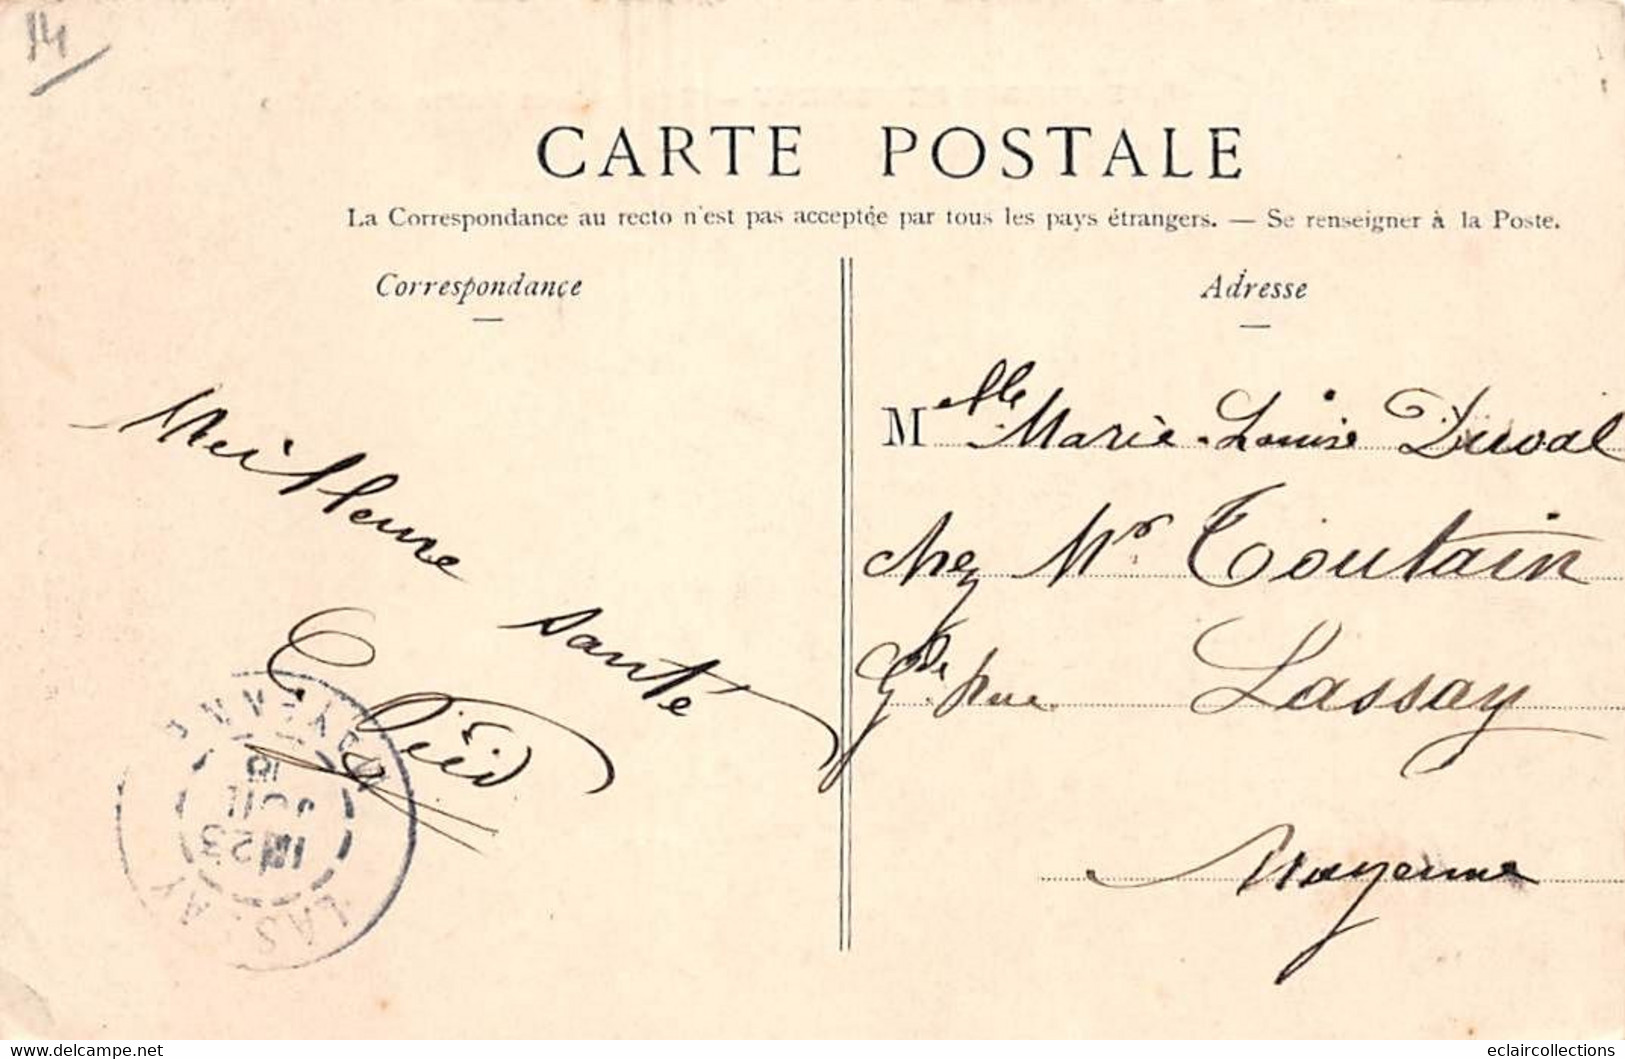 14
CARTE POSTALE
La Correspondance au recto n'est pas acceptée par tous les pays étrangers. — Se renseigner à la Poste.
Correspondance
Meilleure santé
Adresse
Melle Marie-Louise Duval
chez Mr Toutain
Gde Rue Lassay
Mayenne
LASSAY
MAYENNE
23
JUIL
www.delcampe.net
eclaircollections